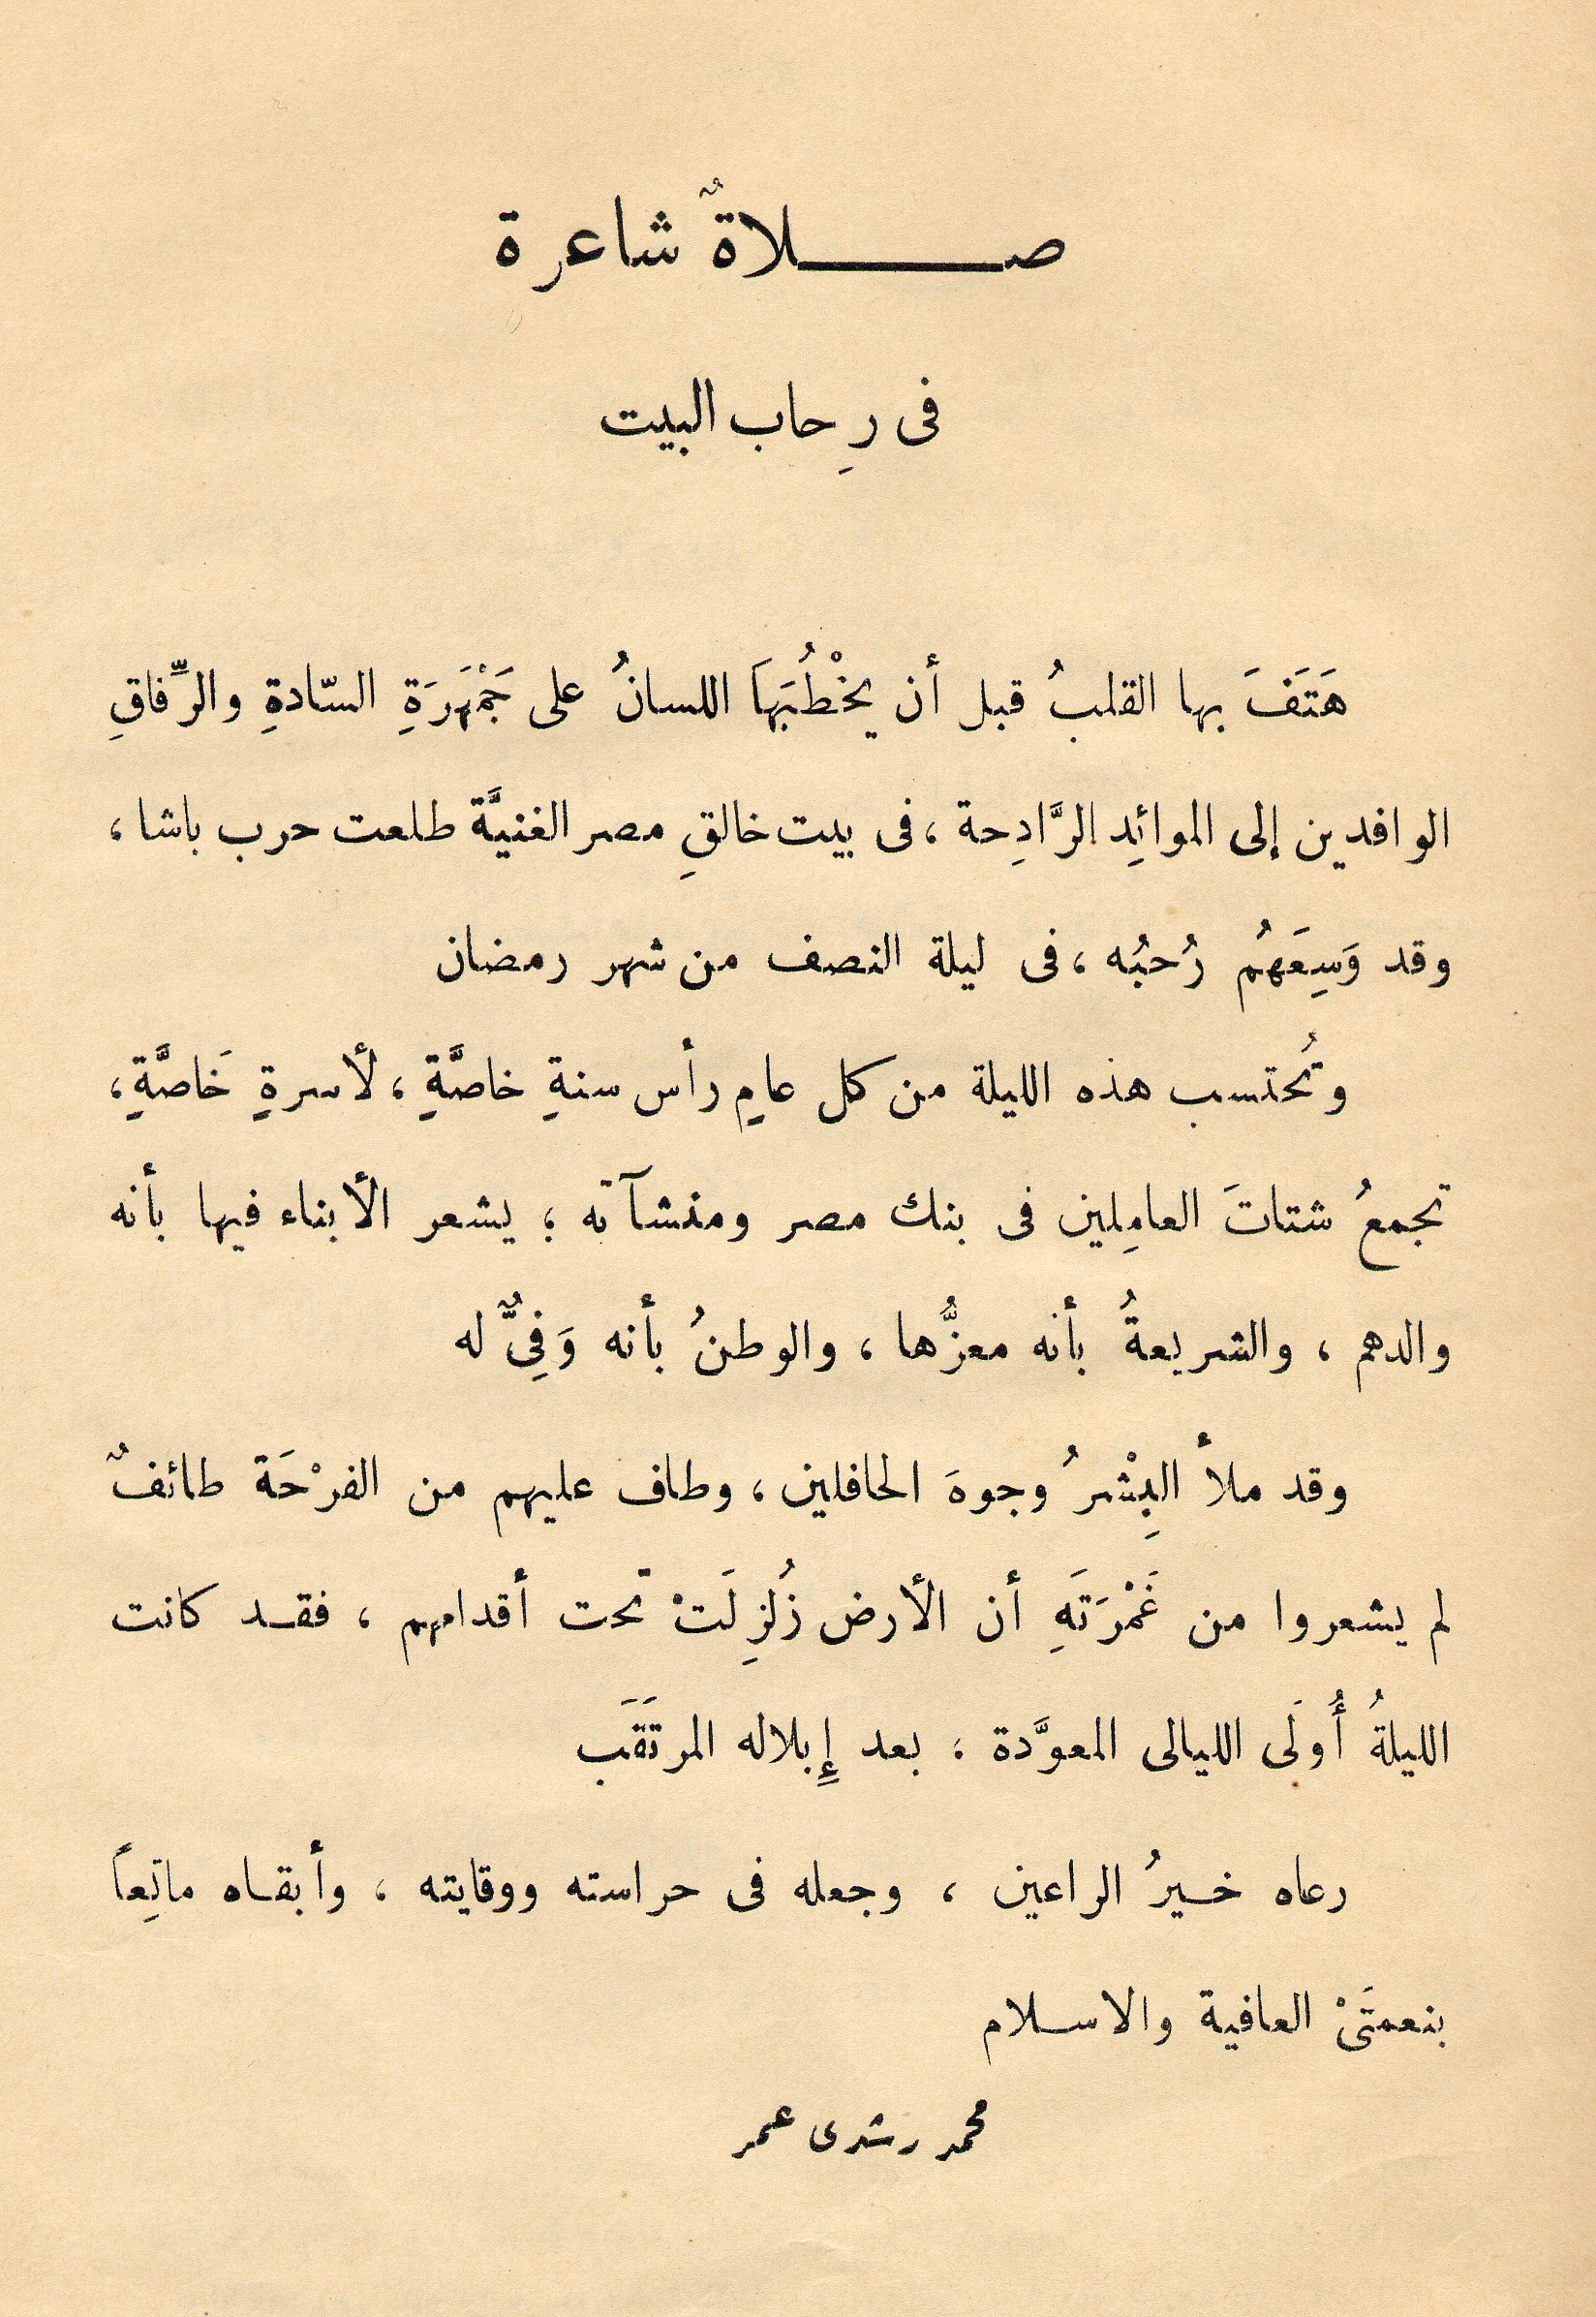 صلاةٌ شاعرة
فى رِحاب البيت
هَتَفَ بها القلبُ قبل أن يخْطُبَهَا اللسانُ على جَمْهَرَةِ السّادةِ والرِّفاقِ
الوافدين إلى الموائِد الرَّادِحة ، فى بيت خالقِ مصر الغنيَّة طلعت حرب باشا ،
وقد وَسِعَهُم رُحبُه ، فى ليلة النصف من شهر رمضان
وتُحتسب هذه الليلة من كل عامٍ رأس سنةٍ خاصَّةٍ ، لأسرةٍ خَاصَّةٍ ،
تجمعُ شتاتَ العامِلين فى بنك مصر ومنشآته ؛ يشعر الأبناء فيها بأنه
والدهم ، والشريعةُ بأنه معزُّها ، والوطنُ بأنه وَفِىٌّ له
وقد ملأ البِشْرُ وجوهَ الحافلين ، وطاف عليهم من الفرْحَة طائفٌ
لم يشعروا من غَمْرَتَهِ أن الأرض زُلزِلَتْ تحت أقدامهم ، فقد كانت
الليلةُ أُولَى الليالى المعوَّدة ، بعد إِبلاله المرتَقَب
رعاه خيرُ الراعين ، وجعله فى حراسته ووقايته ، وأبقاه ماتِعاً
بنعمتَىْ العافية والاسلام
محمد رشدى عمر